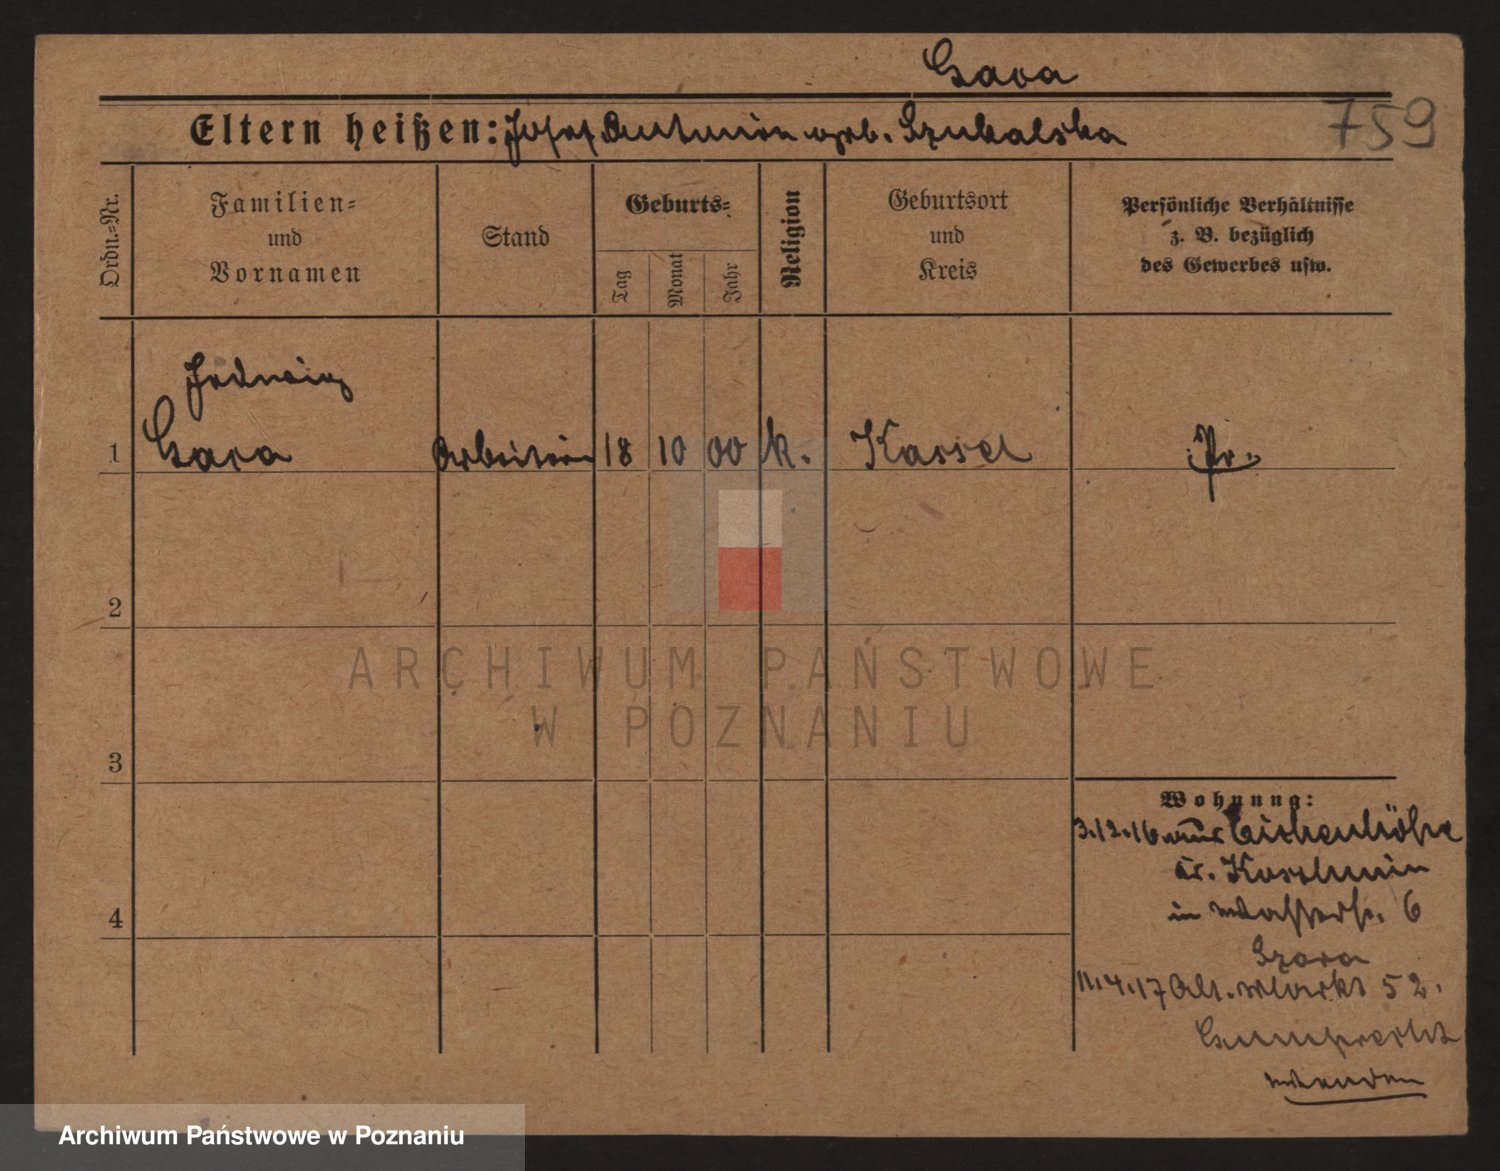 Gara
759
Eltern heißen: Josef Antonin geb. Szukalska
Ordn.=Nr.
Familien=
und
Vornamen
Stand
Geburts=
Tag
Monat
Jahr
Religion
Geburtsort
und
Kreis
Persönliche Verhältnisse
z. B. bezüglich
des Gewerbes usw.
Hedwig
1 Gara Arbeiterin 18 10 00 k. Kassel Pr.
2
3
4
Wohnung:
3.12.16 aus Eichenhöhe
Kr. Koschmin
in Wasserstr. 6
11.4.17 Alt. Markt 52.
Gumprecht
wenden
ARCHIWUM PAŃSTWOWE
W POZNANIU
Archiwum Państwowe w Poznaniu